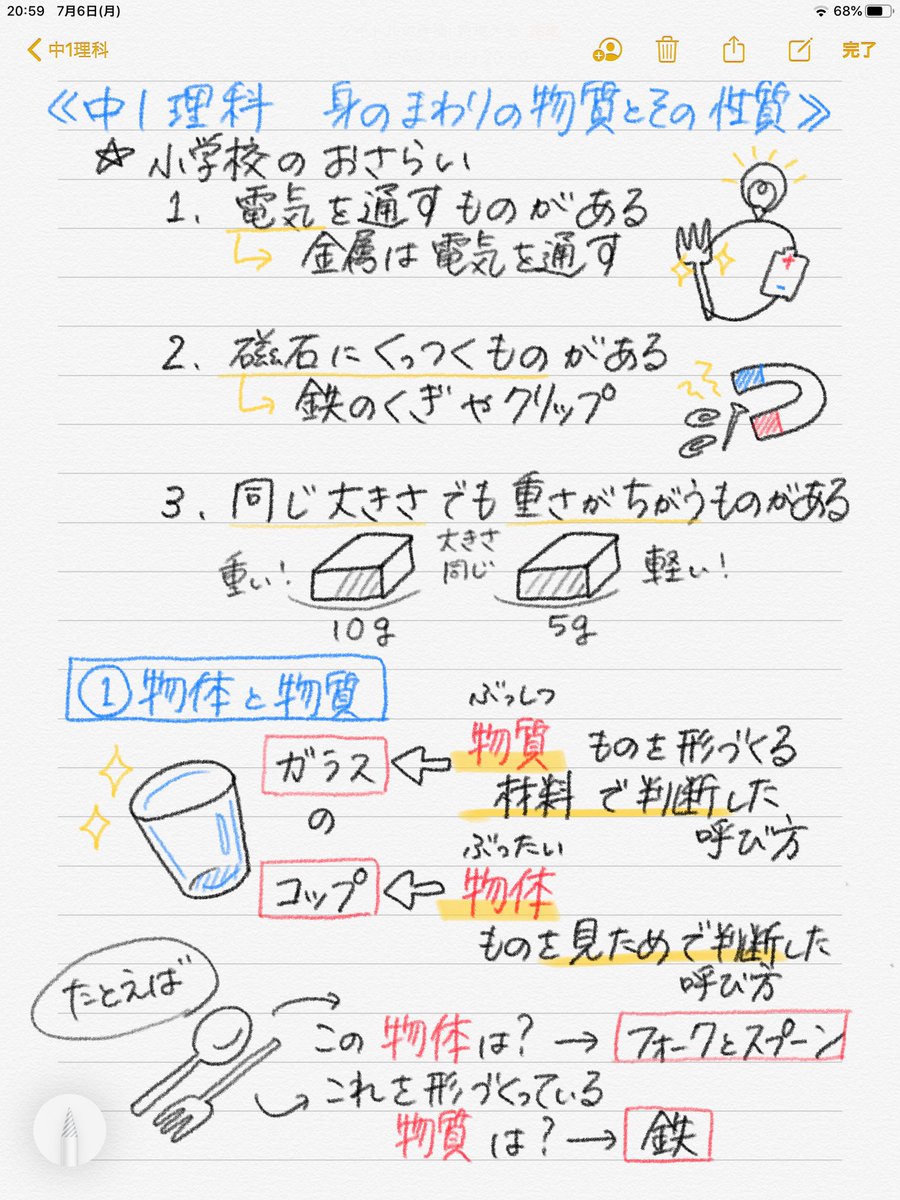 20:59 7月6日(月)
68%
中1理科
完了
≪中1理科 身のまわりの物質とその性質≫
☆ 小学校のおさらい
1. 電気を通すものがある
→ 金属は電気を通す
+
-
2. 磁石にくっつくものがある
→ 鉄のくぎやクリップ
3. 同じ大きさでも重さがちがうものがある
重い!
大きさ
同じ
軽い!
10g
5g
①物体と物質
ぶっしつ
ガラス ← 物質 ものを形づくる
材料で判断した
の
呼び方
ぶったい
コップ ← 物体
ものを見ためで判断した
呼び方
たとえば
この物体は? → フォークとスプーン
これを形づくっている
物質は? → 鉄